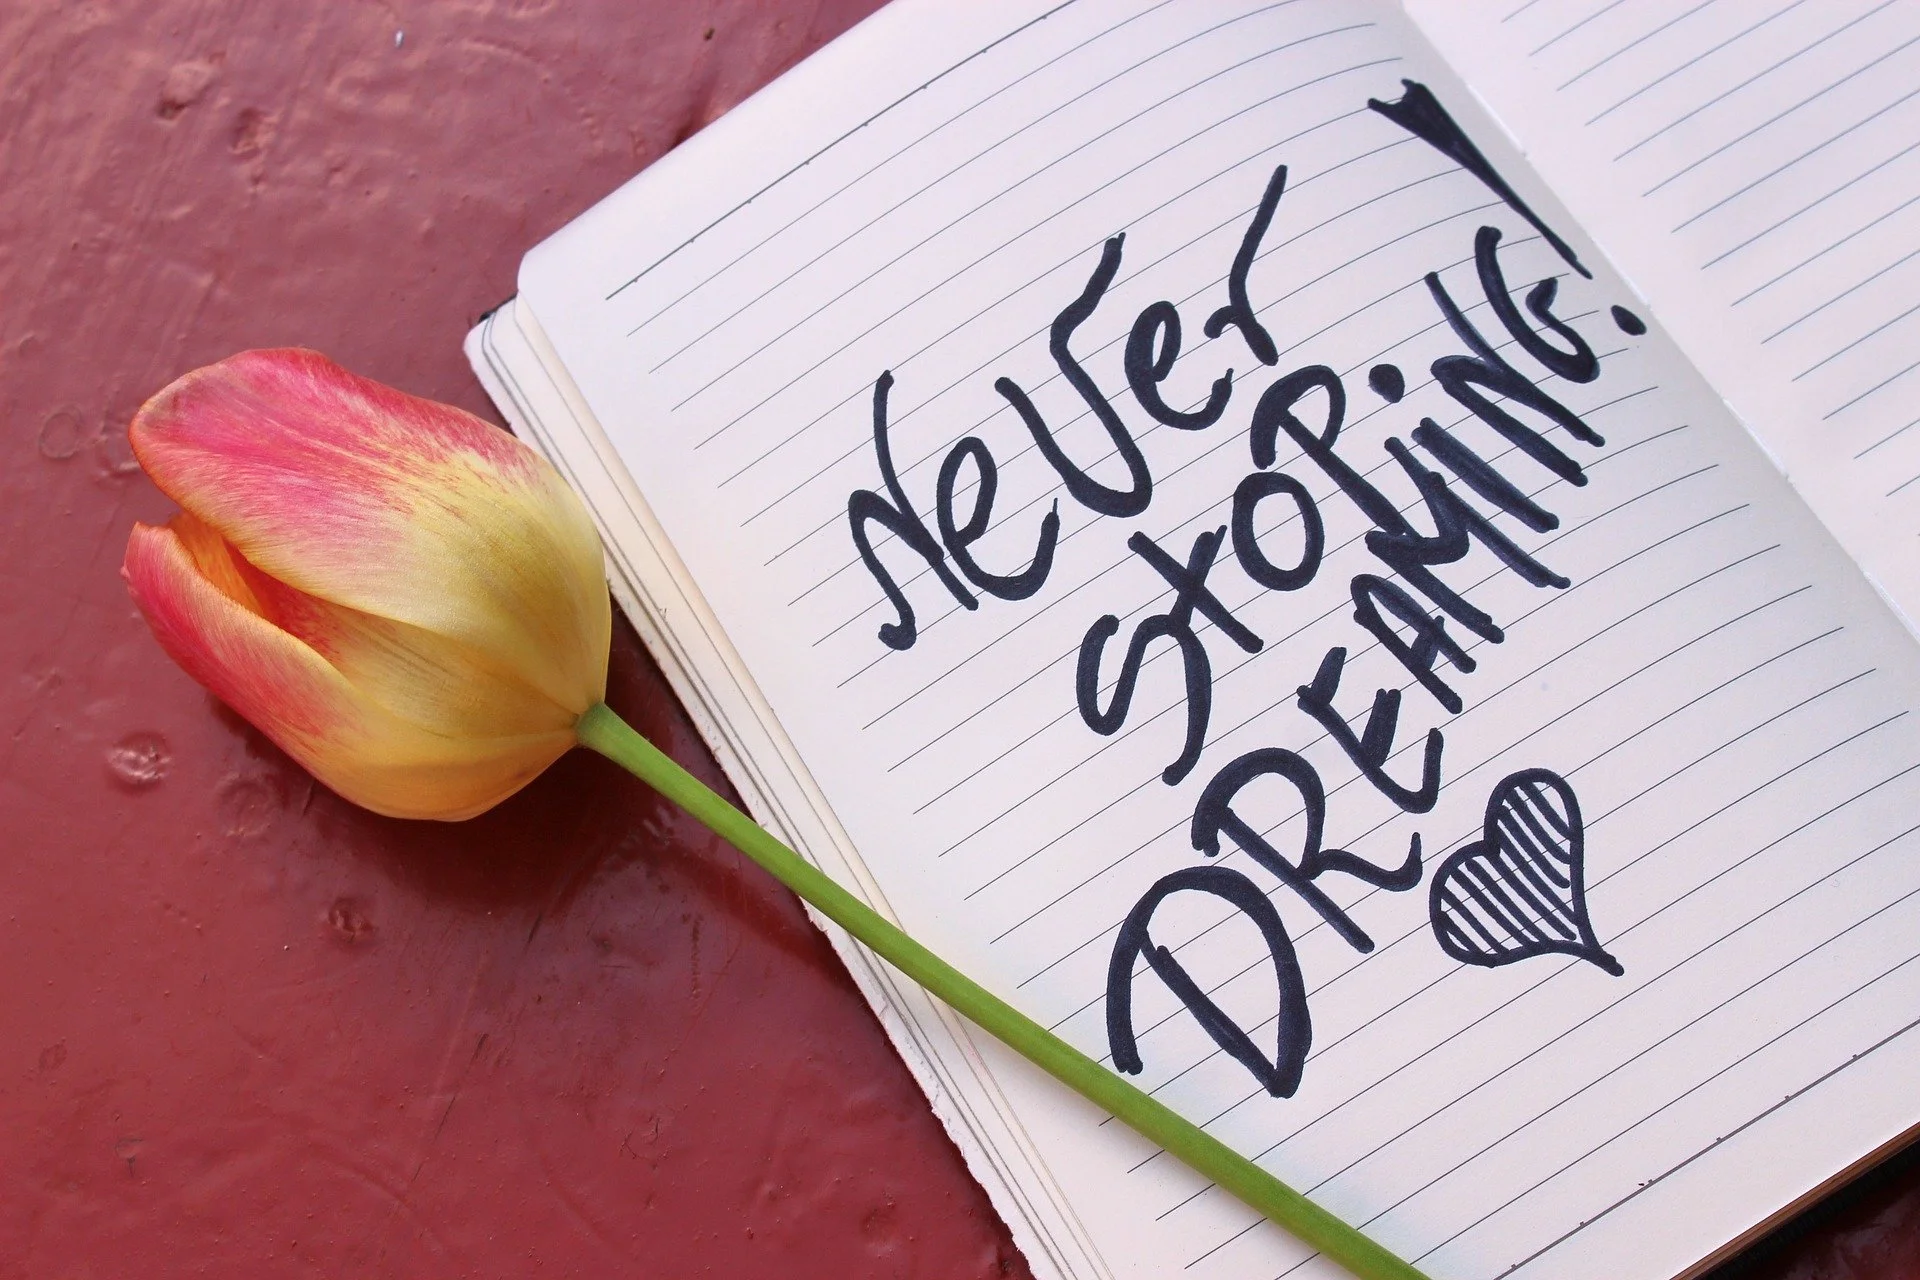 Never
StOP
DREAMiNG!